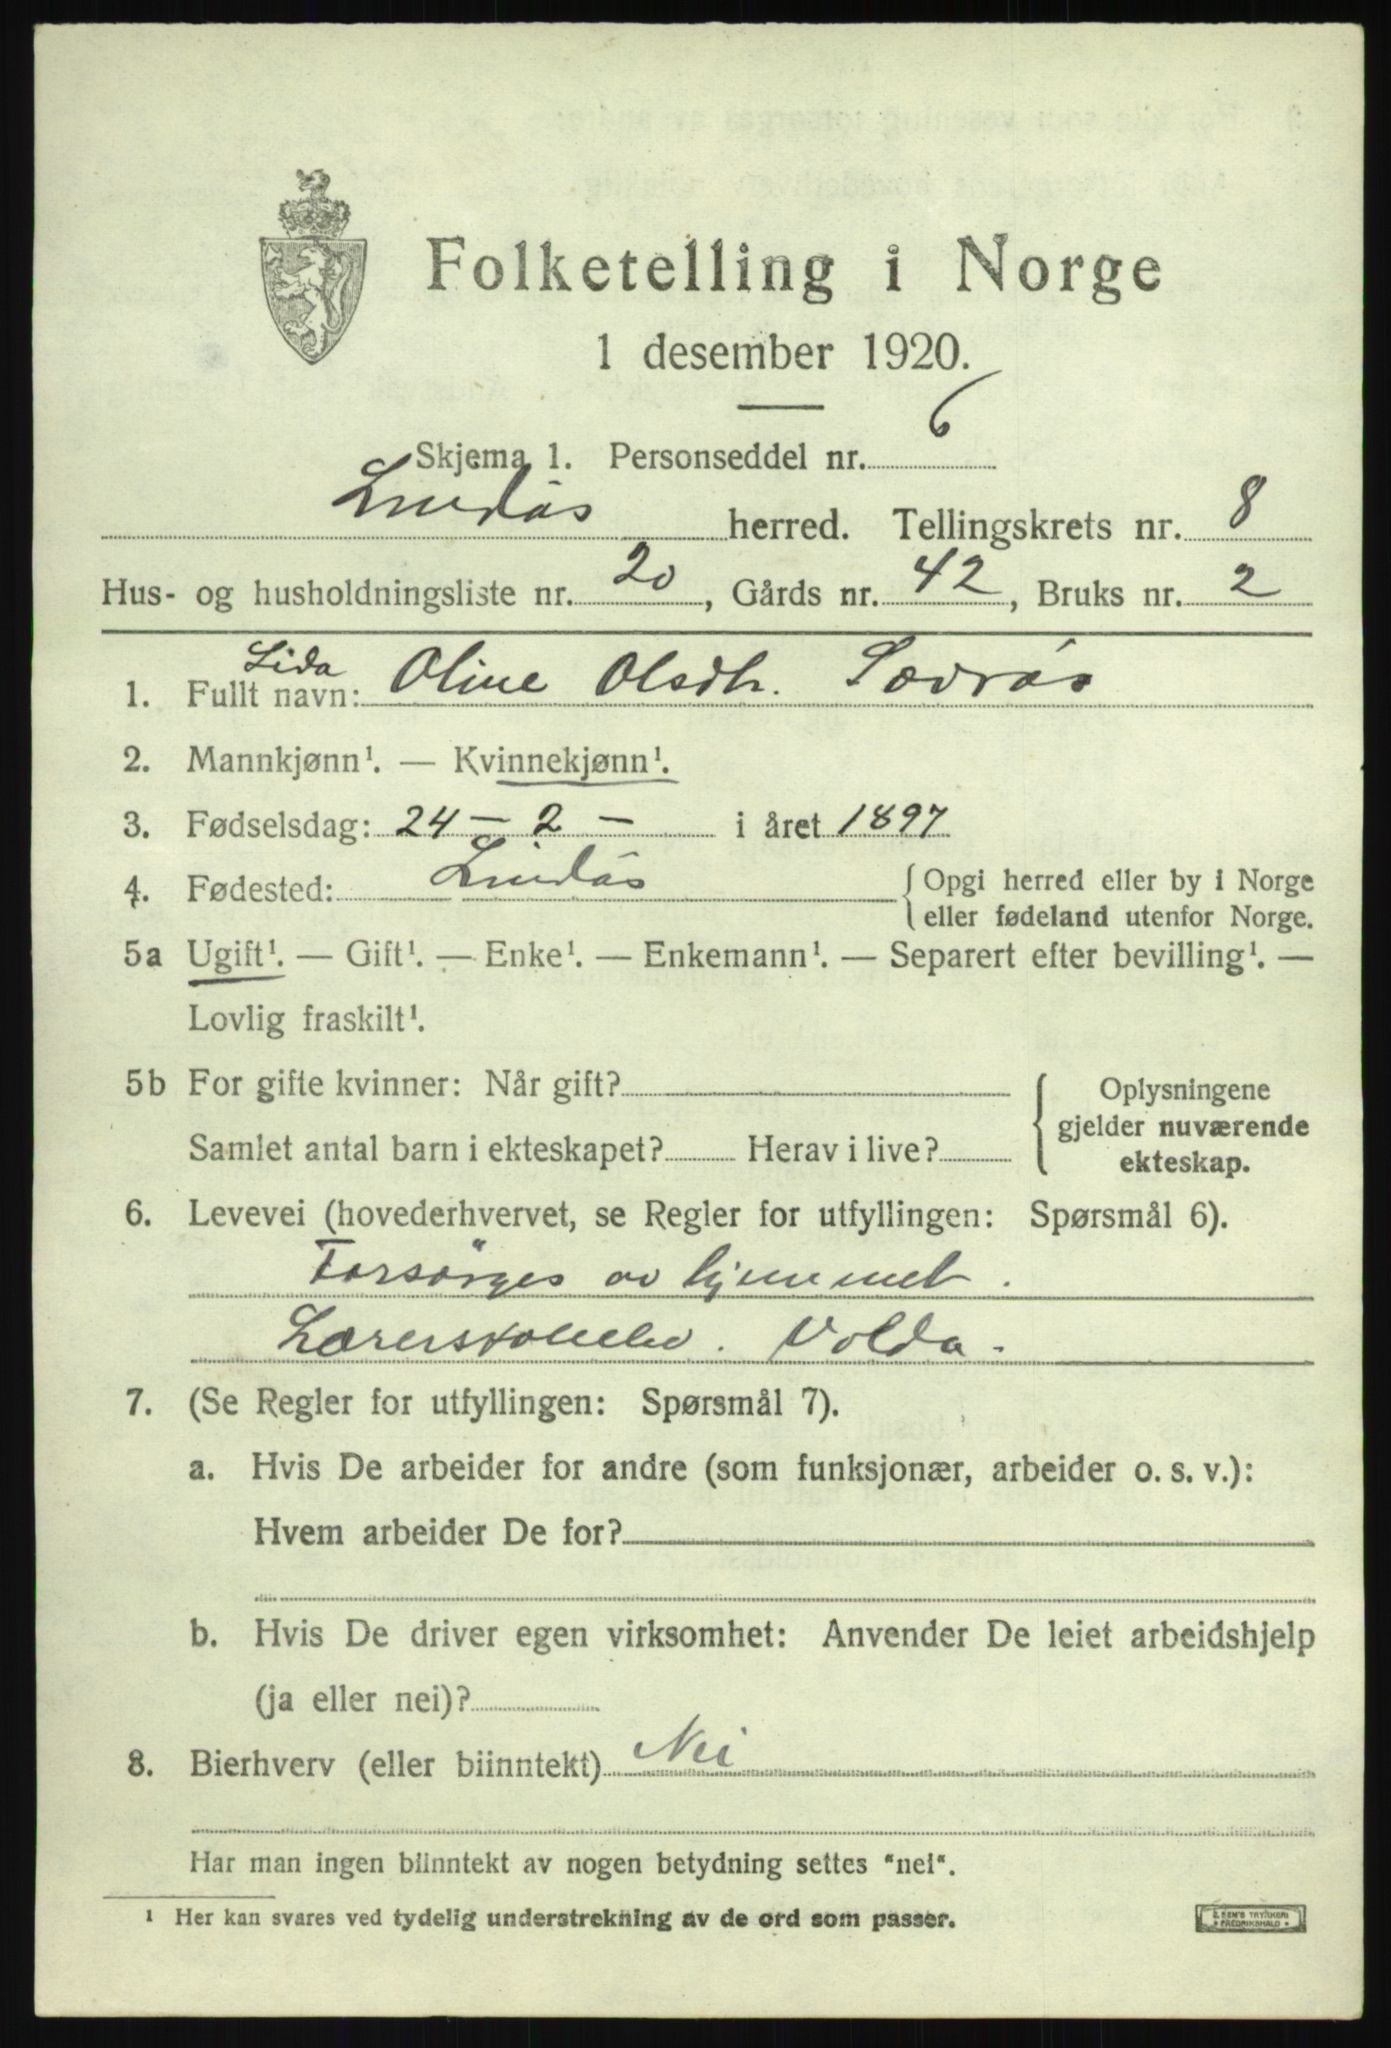 Folketelling i Norge
1 desember 1920.
Skjema 1. Personseddel nr. 6
Lindås herred. Tellingskrets nr. 8
Hus- og husholdningsliste nr. 20, Gårds nr. 42, Bruks nr. 2
Lida
1. Fullt navn: Oline Olsdtr. Sævrås
2. Mannkjønn¹. — Kvinnekjønn¹.
3. Fødselsdag: 24 - 2 - i året 1897
4. Fødested: Lindås {Opgi herred eller by i Norge
eller fødeland utenfor Norge.
5a Ugift¹. — Gift¹. — Enke¹. — Enkemann¹. — Separert efter bevilling¹. —
Lovlig fraskilt¹.
5b For gifte kvinner: Når gift?
Samlet antal barn i ekteskapet? Herav i live?
Oplysningene
gjelder nuværende
ekteskap.
6. Levevei (hovederhvervet, se Regler for utfyllingen: Spørsmål 6).
Forsörges av hjemmet.
Lærerskoleelev. Volda.
7. (Se Regler for utfyllingen: Spørsmål 7).
a. Hvis De arbeider for andre (som funksjonær, arbeider o. s. v.):
Hvem arbeider De for?
b. Hvis De driver egen virksomhet: Anvender De leiet arbeidshjelp
(ja eller nei)?
8. Bierhverv (eller biinntekt) Nei
Har man ingen biinntekt av nogen betydning settes "nei".
¹ Her kan svares ved tydelig understrekning av de ord som passer.